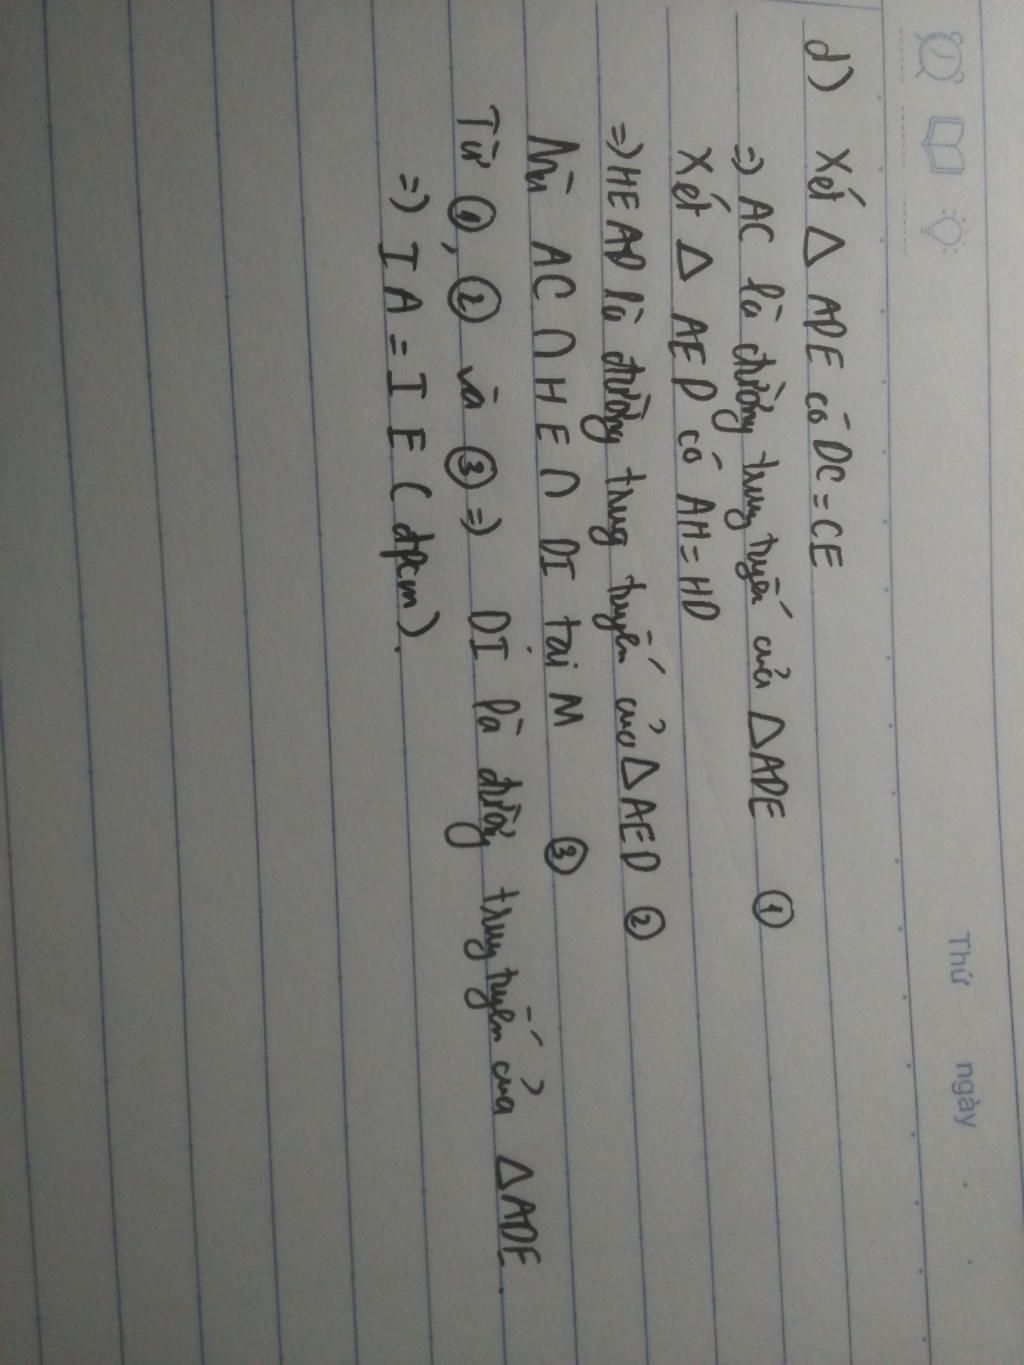 Thứ ngày
d) Xét Δ ADE có DC = CE
=) AC là đường trung tuyến của ΔADE ①
Xét Δ AED có AH = HD
=) HE AD là đường trung tuyến của ΔAED ②
Mà AC ∩ HE ∩ DI tại M ③
Từ ①, ② và ③ =) DI là đường trung tuyến của ΔADE
=) IA = IE (đpcm).